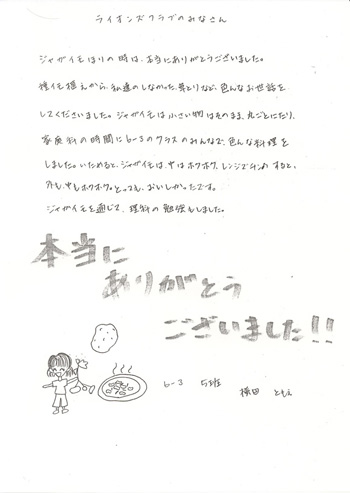 ライオンズクラブのみなさん
ジャガイモほりの時は、本当にありがとうございました。
種イモ植えから、私達のしなかった、草とりなど、色んなお世話を
してくださいました。ジャガイモは小さい物はそのまま、丸ごとにたり、
家庭科の時間に6-3のクラスのみんなで、色んな料理を
しました。いためると、ジャガイモは、中はホクホク、レンジでチンすると、
外も、中もホクホク。とっても、おいしかったです。
ジャガイモを通じて、理科の勉強もしました。
本当に
ありがとう
ございました!!
6-3 5班 横田 ともえ